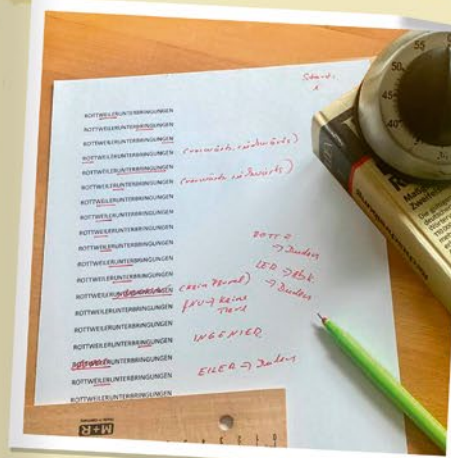 ROTTWEILERUNTERBRINGUNGEN
ROTTWEILERUNTERBRINGUNGEN
ROTTWEILERUNTERBRINGUNGEN
ROTTWEILERUNTERBRINGUNGEN (vorwärts, rückwärts)
ROTTWEILERUNTERBRINGUNGEN
ROTTWEILERUNTERBRINGUNGEN (vorwärts, rückwärts)
ROTTWEILERUNTERBRINGUNGEN
ROTTWEILERUNTERBRINGUNGEN
ROTTWEILERUNTERBRINGUNGEN
→ Duden
ROTTWEILERUNTERBRINGUNGEN
ROTTWEILERUNTERBRINGUNGEN
→ Abk.
ROTTWEILERUNTERBRINGUNGEN
→ Duden
ROTTWEILERUNTERBRINGUNGEN (kein Plural)
ROTTWEILERUNTERBRINGUNGEN GNU → keine
Tiere
ROTTWEILERUNTERBRINGUNGEN
ROTTWEILERUNTERBRINGUNGEN
ROTTWEILERUNTERBRINGUNGEN
EILER → Duden
ROTTWEILERUNTERBRINGUNGEN
M+R
55
50
45
40